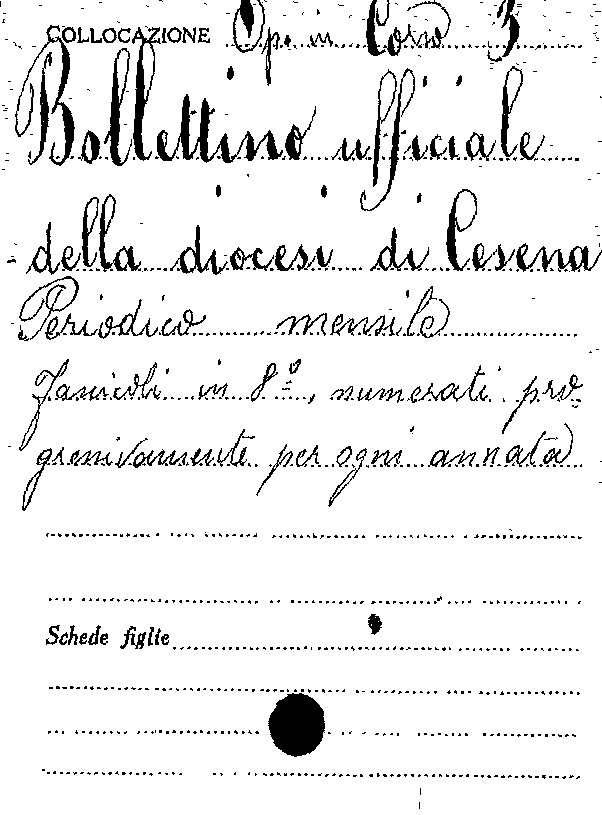 COLLOCAZIONE Op. in Corso 3
Bollettino ufficiale
della diocesi di Cesena
Periodico mensile
Fascicoli in 8º, numerati pro-
gressivamente per ogni annata
Schede figlie